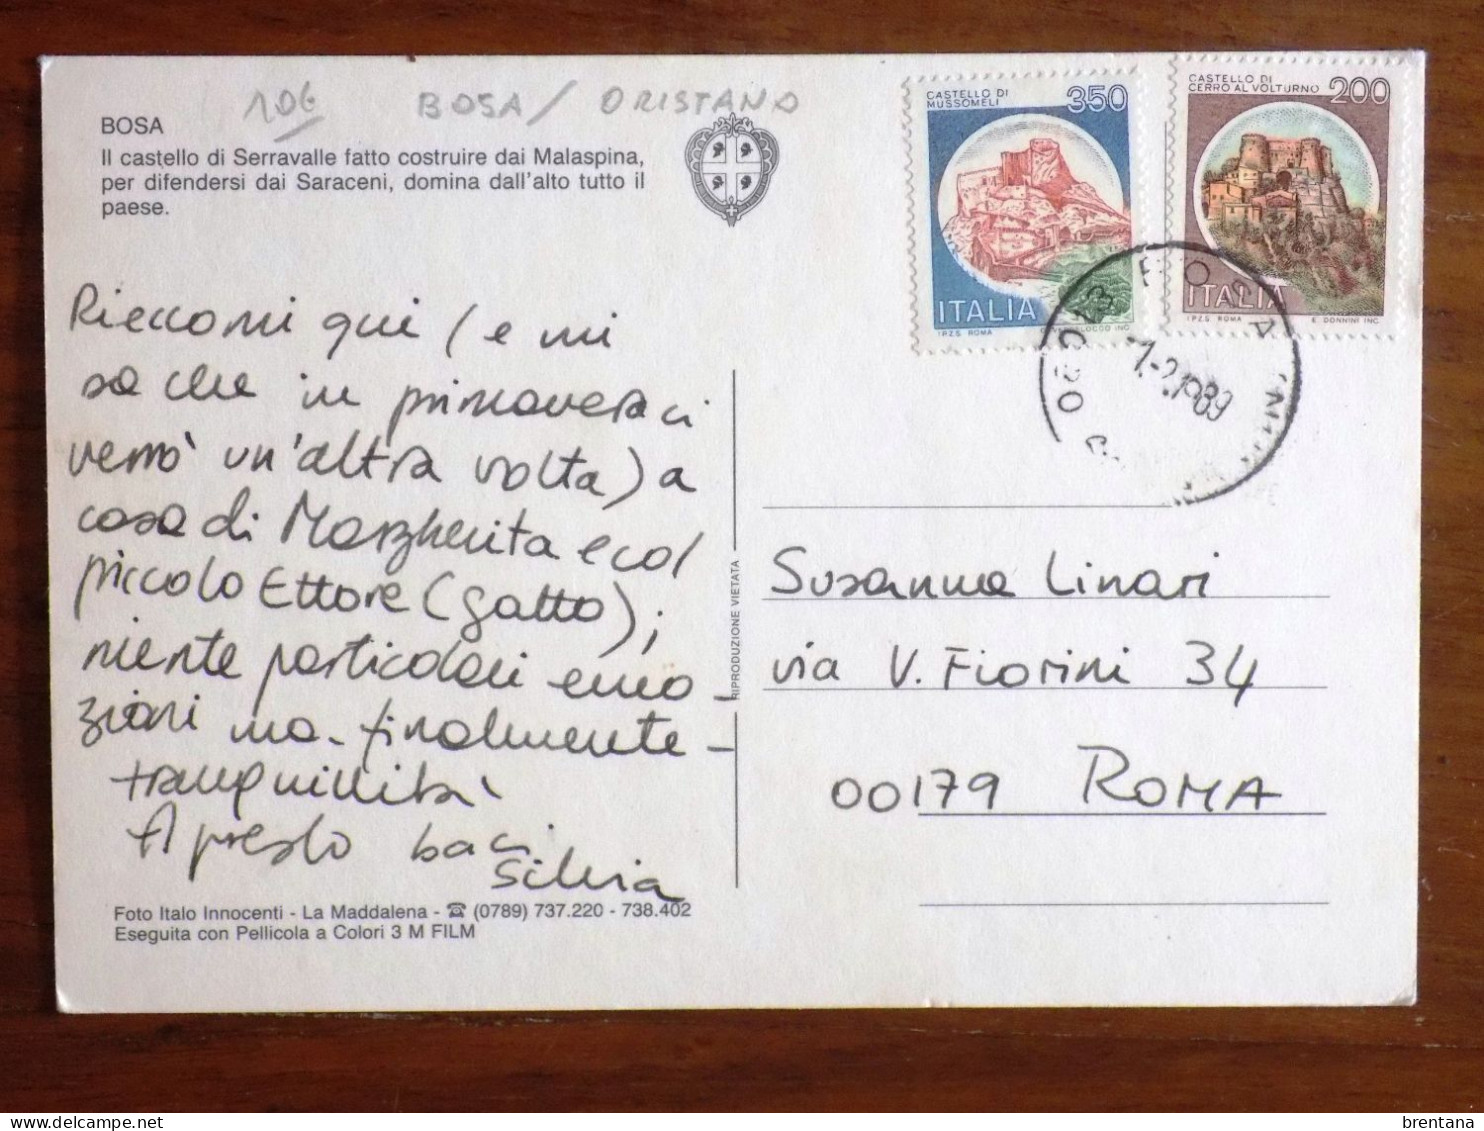 106 BOSA / ORISTANO
BOSA
Il castello di Serravalle fatto costruire dai Malaspina,
per difendersi dai Saraceni, domina dall'alto tutto il
paese.
CASTELLO DI
MUSSOMELI
350
ITALIA
I.P.Z.S. ROMA
CASTELLO DI
CERRO AL VOLTURNO
200
ITALIA
I.P.Z.S. ROMA E. DONNINI INC.
1-2.1989
Rieccomi qui (e mi
sa che in primavera ci
verrò un'altra volta) a
casa di Margherita e col
piccolo Ettore (gatto);
niente particolari emo-
zioni ma finalmente
tranquillità
A presto baci
Silvia
RIPRODUZIONE VIETATA
Susanna Linari
via V. Fiorini 34
00179 ROMA
Foto Italo Innocenti - La Maddalena - ☎ (0789) 737.220 - 738.402
Eseguita con Pellicola a Colori 3 M FILM
brentana